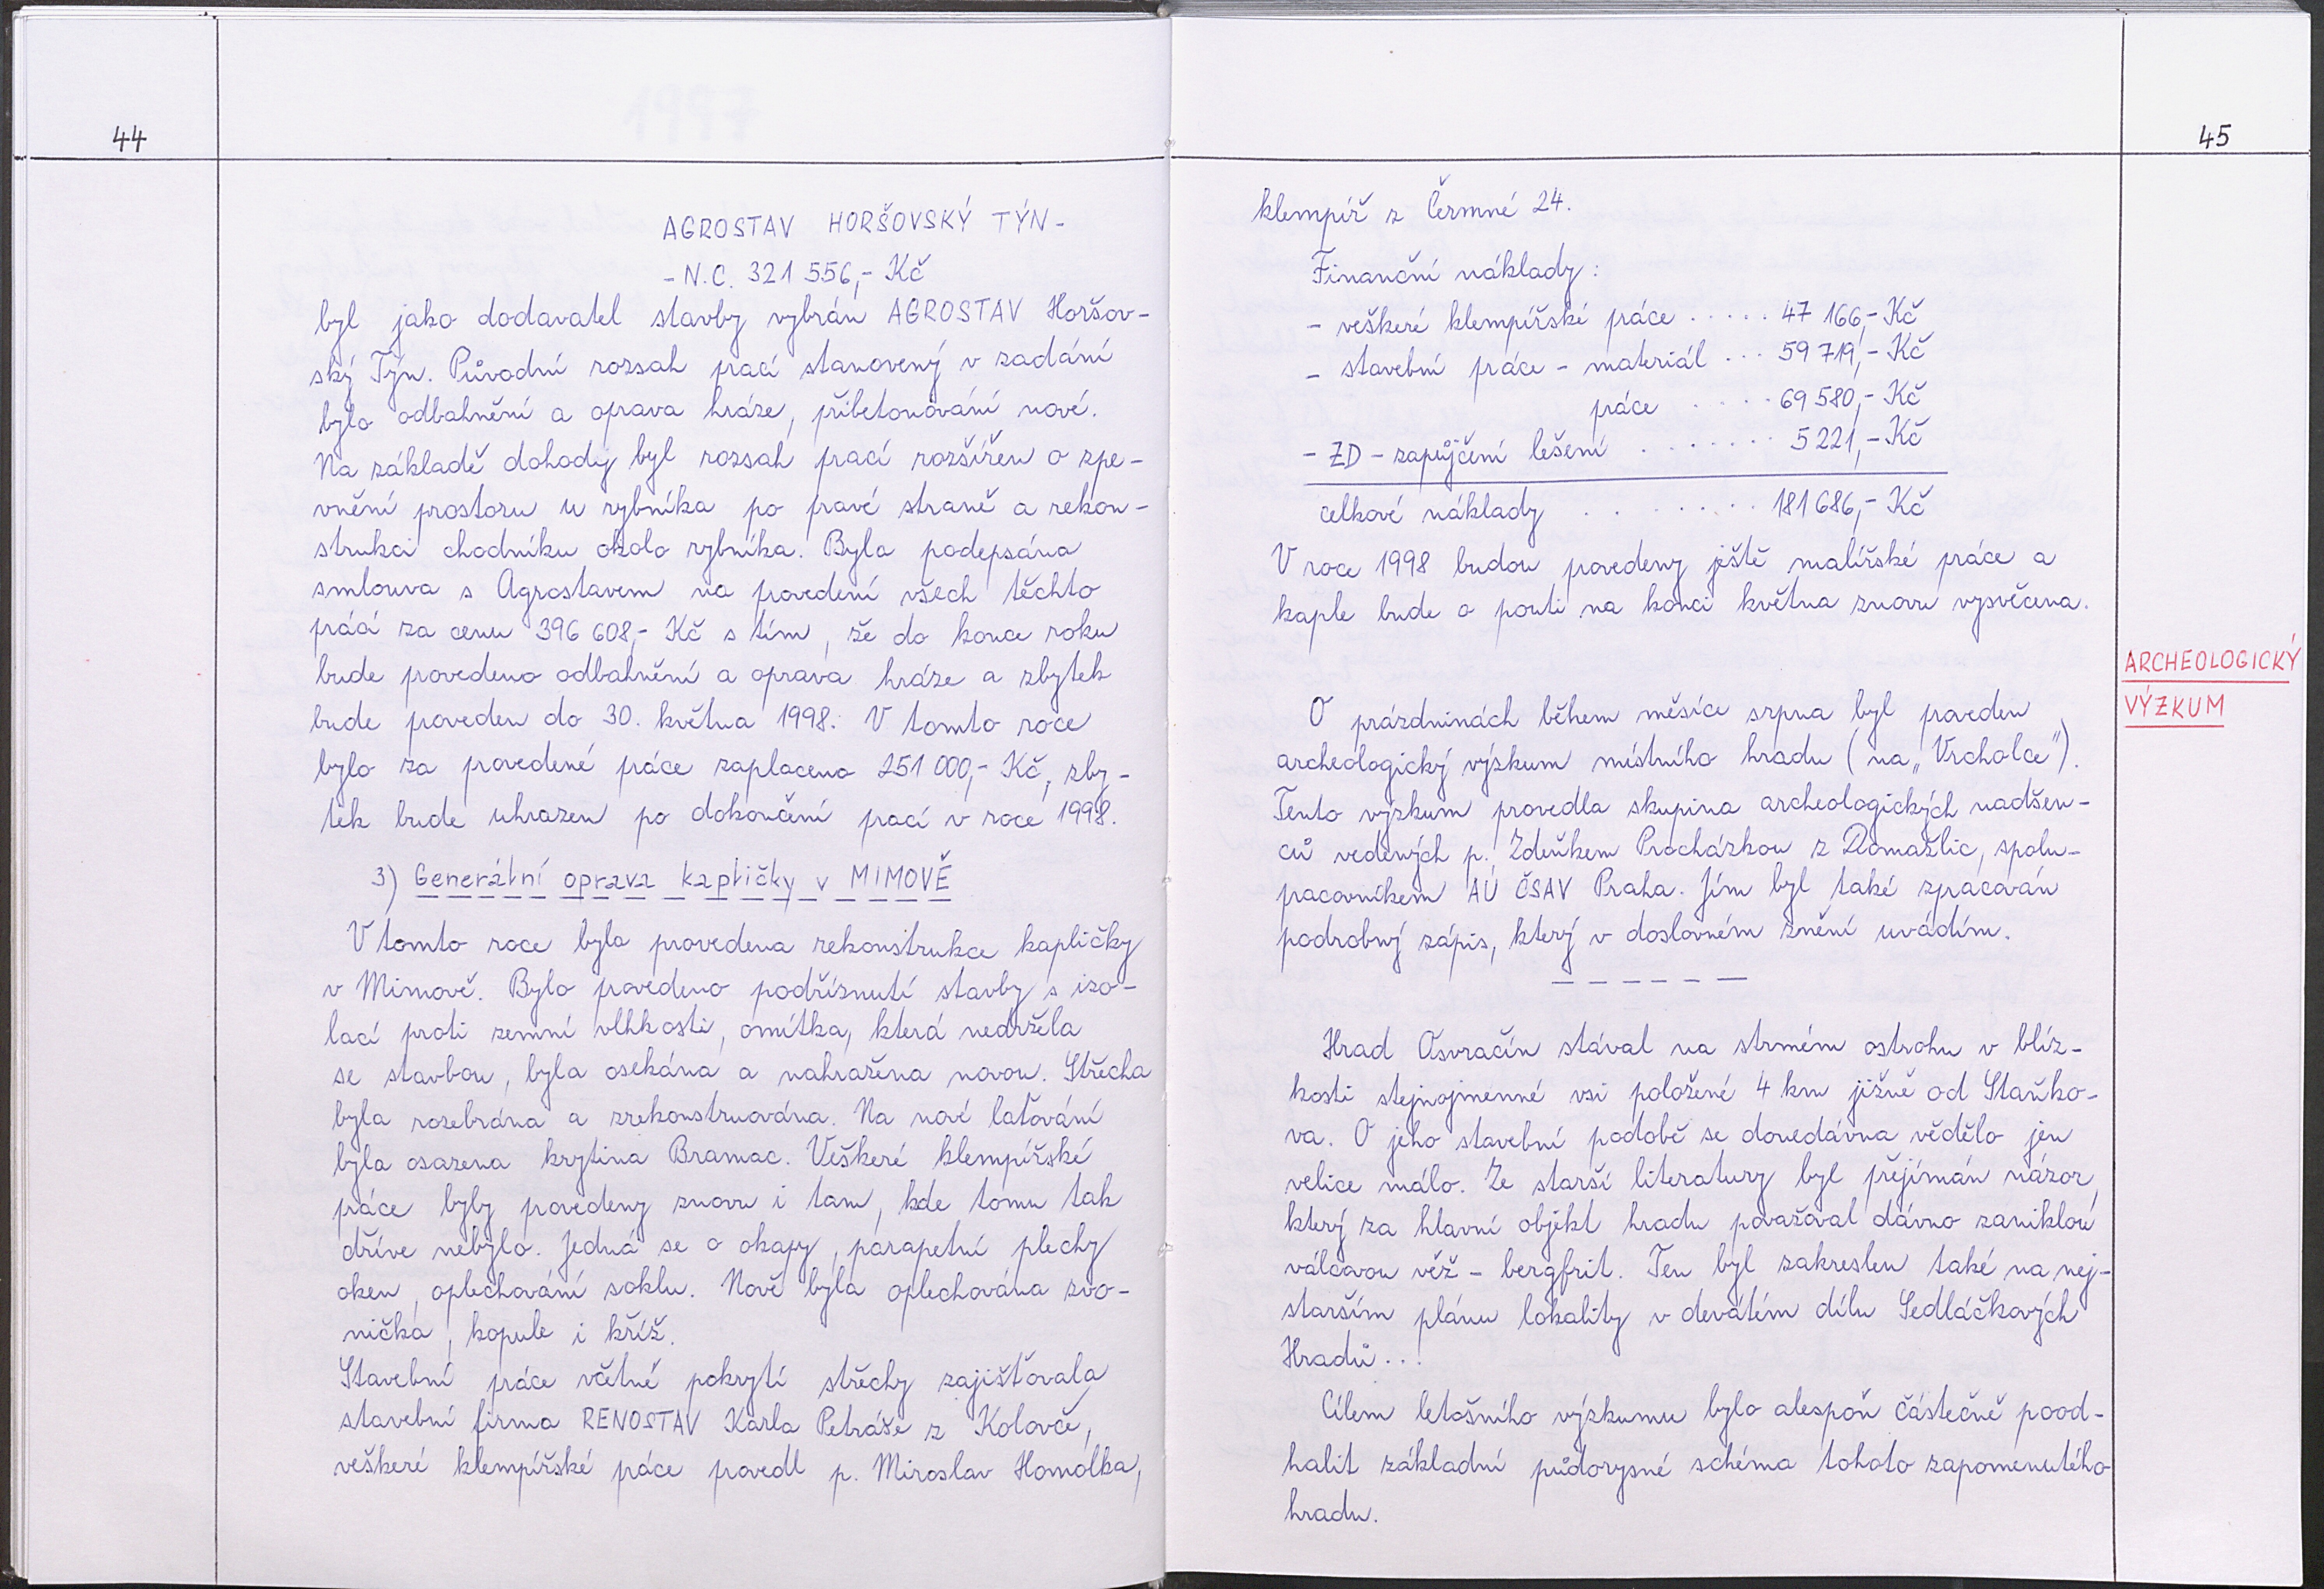 44
AGROSTAV HORŠOVSKÝ TÝN -
- N.C. 321 556,- Kč
byl jako dodavatel stavby vybrán AGROSTAV Horšov-
ský Týn. Původní rozsah prací stanovený v zadání
bylo odbahnění a oprava hráze, přibetonování nové.
Na základě dohody byl rozsah prací rozšířen o zpe-
vnění prostoru u rybníka po pravé straně a rekon-
strukci chodníku okolo rybníka. Byla podepsána
smlouva s Agrostavem na provedení všech těchto
prací za cenu 396 608,- Kč s tím, že do konce roku
bude provedeno odbahnění a oprava hráze a zbytek
bude proveden do 30. května 1998. V tomto roce
bylo za provedené práce zaplaceno 251 000,- Kč, zby-
tek bude uhrazen po dokončení prací v roce 1998.
3) Generální oprava kapličky v MIMOVĚ
V tomto roce byla provedena rekonstrukce kapličky
v Mimově. Bylo provedeno podříznutí stavby s izo-
lací proti zemní vlhkosti, omítka, která nedržela
se stavbou, byla osekána a nahražena novou. Střecha
byla rozebrána a zrekonstruována. Na nové laťování
byla osazena krytina Bramac. Veškeré klempířské
práce byly provedeny znovu i tam, kde tomu tak
dříve nebylo. Jedná se o okapy, parapetní plechy
oken, oplechování soklu. Nově byla oplechována zvo-
nička, kopule i kříž.
Stavební práce včetně pokrytí střechy zajišťovala
stavební firma RENOSTAV Karla Petráše z Kolovče,
veškeré klempířské práce provedl p. Miroslav Homolka,
45
klempíř z Čermné 24.
Finanční náklady:
- veškeré klempířské práce ..... 47 166,- Kč
- stavební práce - materiál ... 59 719,- Kč
práce .... 69 580,- Kč
- ZD - zapůjčení lešení ....... 5 221,- Kč
celkové náklady ....... 181 686,- Kč
V roce 1998 budou provedeny ještě malířské práce a
kaple bude o pouti na konci května znovu vysvěcena.
ARCHEOLOGICKÝ
VÝZKUM
O prázdninách během měsíce srpna byl proveden
archeologický výzkum místního hradu (na „Vrcholce").
Tento výzkum provedla skupina archeologických nadšen-
ců vedených p. Zdeňkem Procházkou z Domažlic, spolu-
pracovníkem AÚ ČSAV Praha. Jím byl také zpracován
podrobný zápis, který v doslovném znění uvádím.
------
Hrad Osvračín stával na strmém ostrohu v blíz-
kosti stejnojmenné vsi položené 4 km jižně od Staňko-
va. O jeho stavební podobě se donedávna vědělo jen
velice málo. Ze starší literatury byl přejímán názor,
který za hlavní objekt hradu považoval dávno zaniklou
válcovou věž - bergfrit. Ten byl zakreslen také na nej-
starším plánu lokality v devátém dílu Sedláčkových
Hradů...
Cílem letošního výzkumu bylo alespoň částečně pood-
halit základní půdorysné schéma tohoto zapomenutého
hradu.